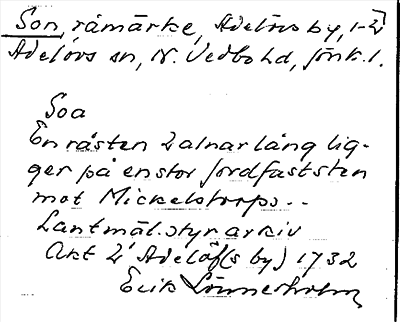 Son, råmärke, Adelövs by, 1-2
Adelövs sn, N. Vedbo hd, Jönk. l.
Soa
En råsten 2 alnar lång lig-
ger på en stor Jordfast sten
mot Mickelstorps..
Lantmät.styr arkiv
Akt 2 Adelöf(s by) 1732
Erik Lönnerholm